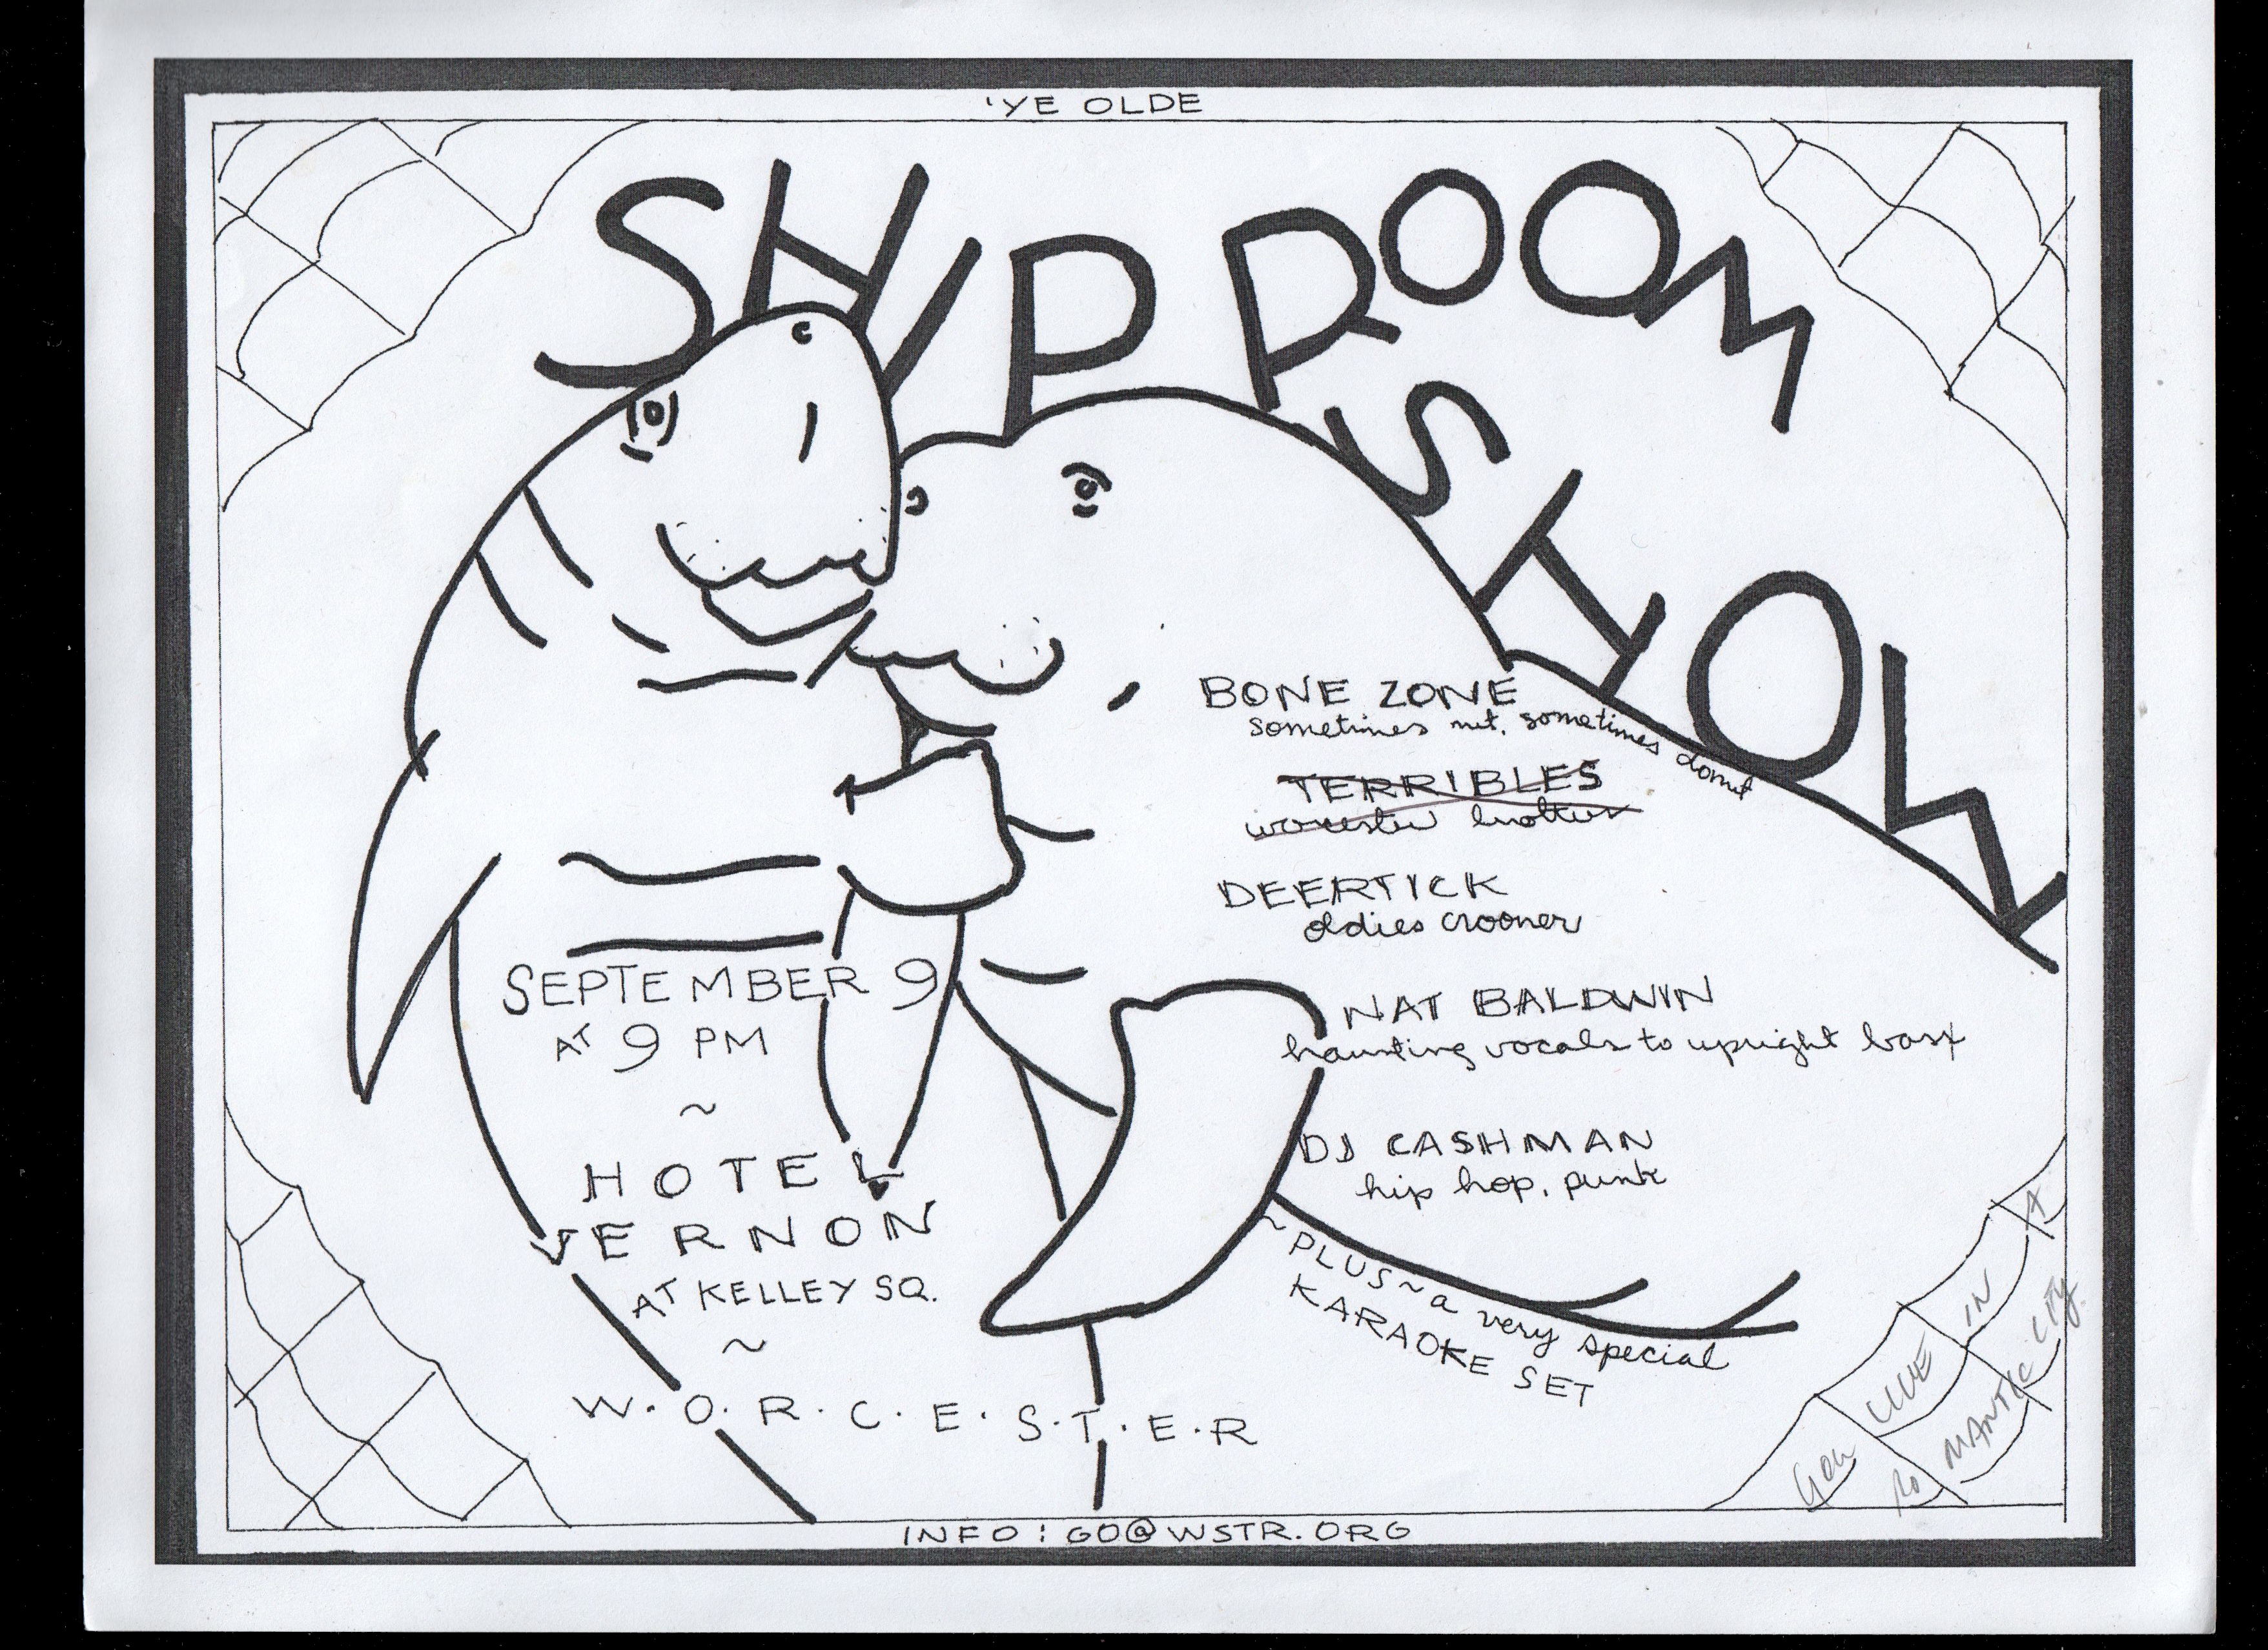 'YE OLDE
SHIP ROOM
SHOW
BONE ZONE
sometimes nut, sometimes donut
TERRIBLES
worcester brother
DEERTICK
oldies crooner
NAT BALDWIN
haunting vocals to upright bass
DJ CASHMAN
hip hop, punk
~PLUS~ a very special
KARAOKE SET
SEPTEMBER 9
AT 9 PM
~
HOTEL
VERNON
AT KELLEY SQ.
~
W.O.R.C.E.S.T.E.R
YOU LIVE IN A
ROMANTIC CITY.
INFO: GO@WSTR.ORG